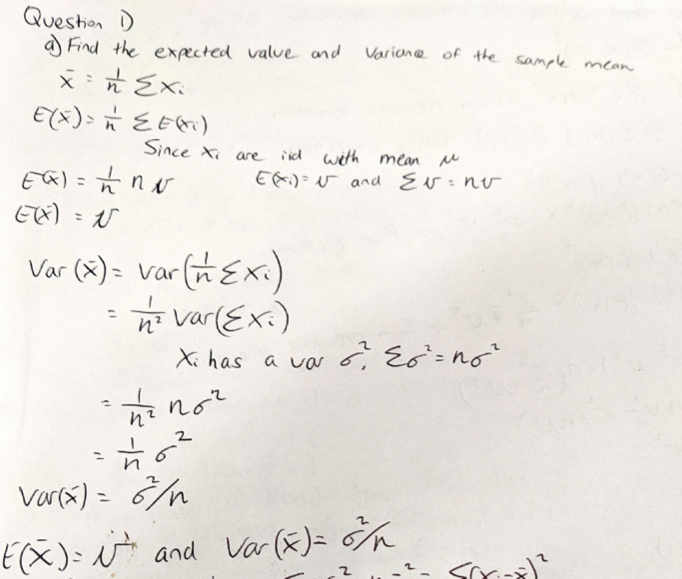 Question 1)
a) Find the expected value and Variance of the sample mean
x̄ = 1/n Σxᵢ
E(x̄) = 1/n Σ E(xᵢ)
Since xᵢ are iid with mean μ
E(x̄) = 1/n n μ    E(xᵢ) = μ and Σμ = nμ
E(x̄) = μ
Var(x̄) = var(1/n Σxᵢ)
= 1/n² var(Σxᵢ)
Xᵢ has a var σ², Σσ² = nσ²
= 1/n² nσ²
= 1/n σ²
Var(x̄) = σ²/n
E(X̄) = μ and Var(x̄) = σ²/n